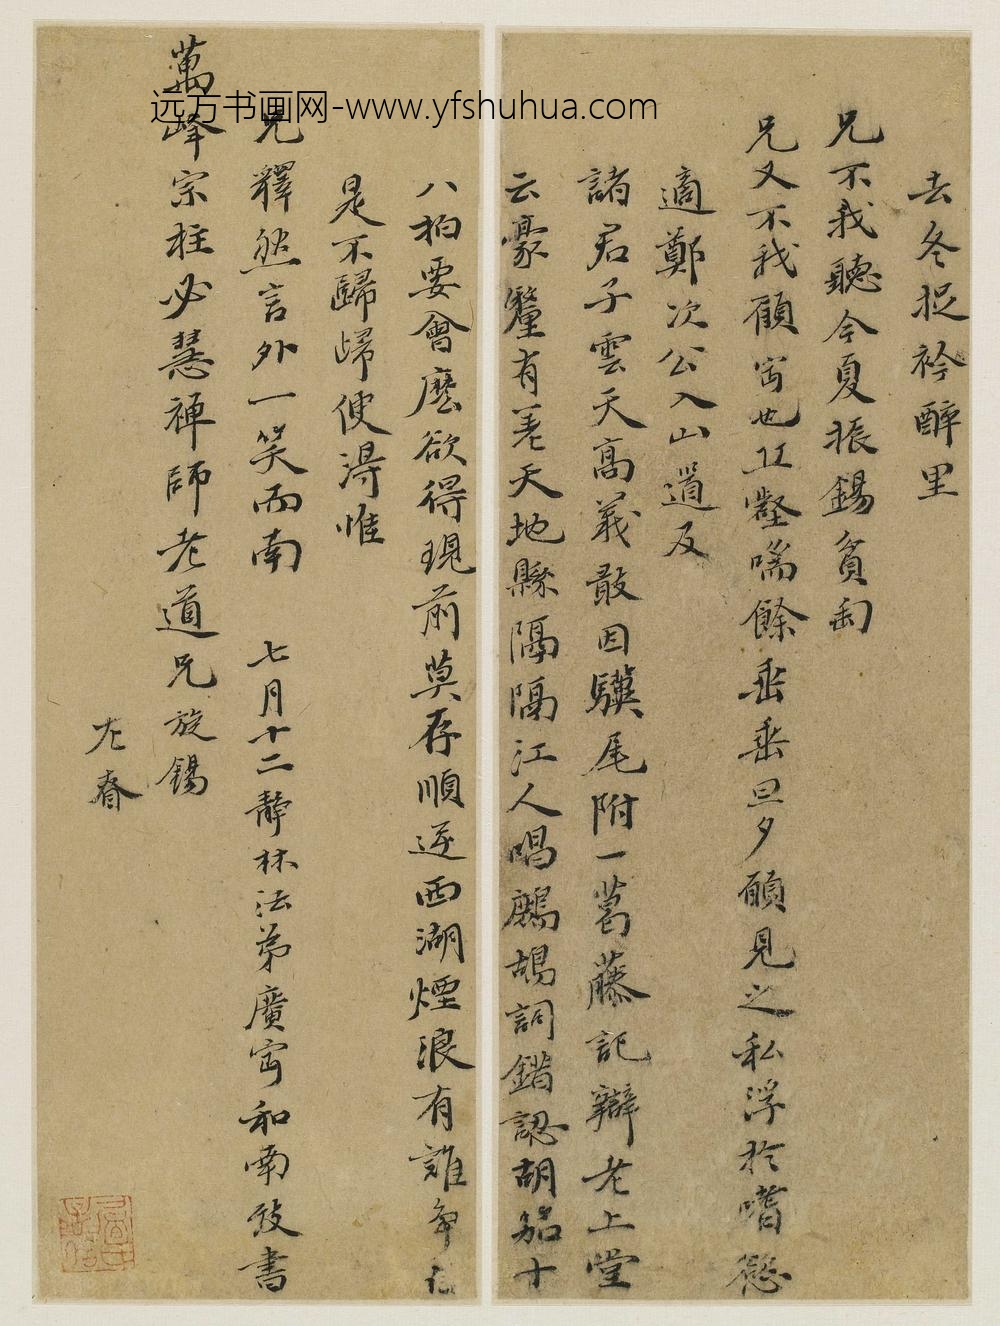 去冬捉衿醉里
兄不我聽今夏振錫貧
兄又不我顧甯也丘壑喘餘垂垂旦夕願見之私浮於嗜慾
適鄭次公入山道及
諸君子雲天高義敢因驥尾附一葛藤記辯老上堂
云豪釐有差天地縣隔隔江人唱鷓鴣詞錯認胡笳十
八拍要會麼欲得現前莫存順逆西湖煙浪有誰爭
是不歸歸便得惟
兄釋然言外一笑而南 七月十二靜林法弟廣甯和南致書
萬峰宗柱必慧禪師老道兄旋錫
左春
远方书画网-www.yfshuhua.com